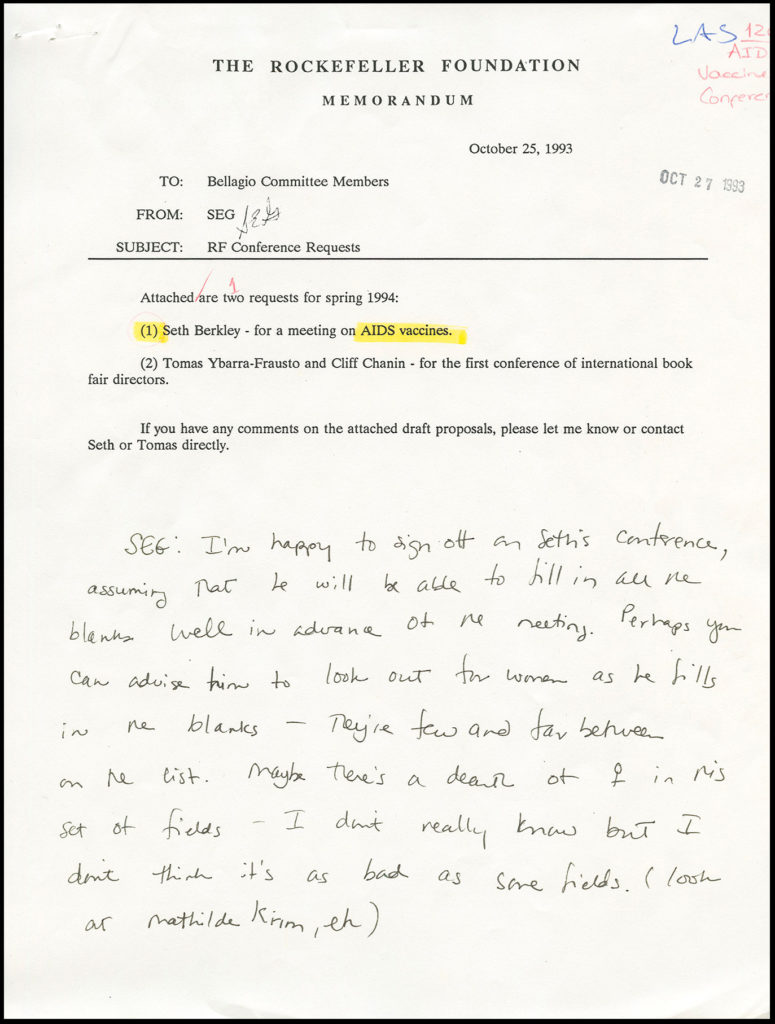 LAS 12
AID
Vaccine
Conferen
THE ROCKEFELLER FOUNDATION
MEMORANDUM
October 25, 1993
OCT 27 1993
TO: Bellagio Committee Members
FROM: SEG
SUBJECT: RF Conference Requests
1
Attached are two requests for spring 1994:
(1) Seth Berkley - for a meeting on AIDS vaccines.
(2) Tomas Ybarra-Frausto and Cliff Chanin - for the first conference of international book
fair directors.
If you have any comments on the attached draft proposals, please let me know or contact
Seth or Tomas directly.
SEG: I'm happy to sign off on Seth's conference,
assuming that he will be able to fill in all the
blanks well in advance of the meeting. Perhaps you
can advise him to look out for women as he fills
in the blanks — They're few and far between
on the list. Maybe there's a dearth of ♀ in this
set of fields – I don't really know but I
don't think it's as bad as some fields. (look
at Mathilde Krim, eh)